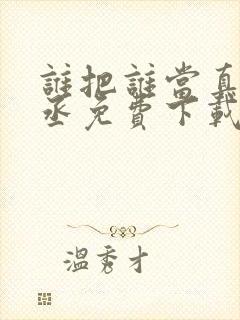 誰把誰當真
丞免費下載
溫秀才